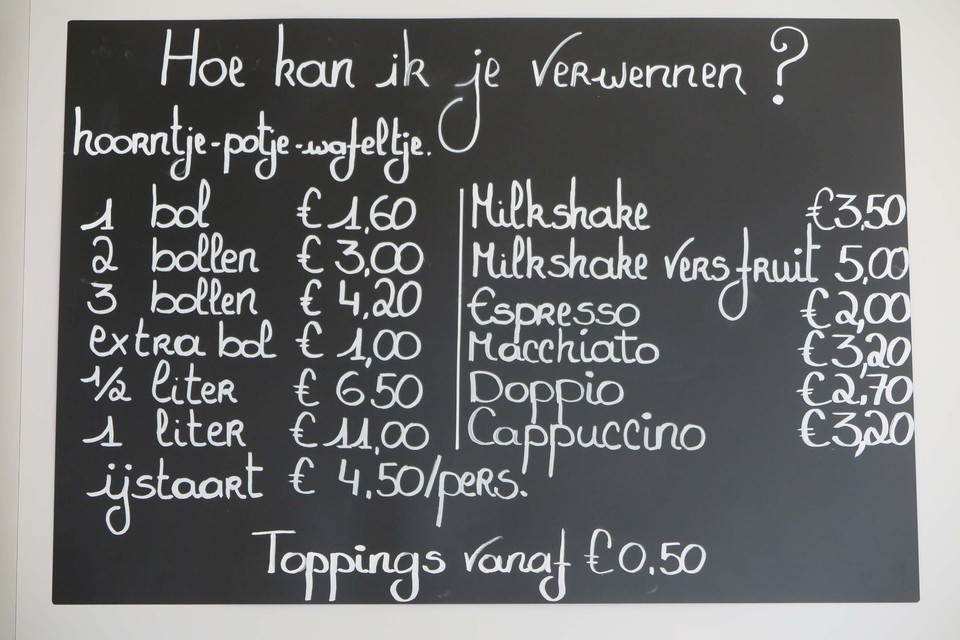 Hoe kan ik je verwennen?
hoorntje-potje-wafeltje.
1 bol € 1,60
2 bollen € 3,00
3 bollen € 4,20
extra bol € 1,00
1/2 liter € 6.50
1 liter € 11,00
ijstaart € 4.50/pers.
Milkshake €3,50
Milkshake vers fruit 5,00
Espresso €2,00
Macchiato €3,20
Doppio €2,70
Cappuccino €3,20
Toppings vanaf €0.50